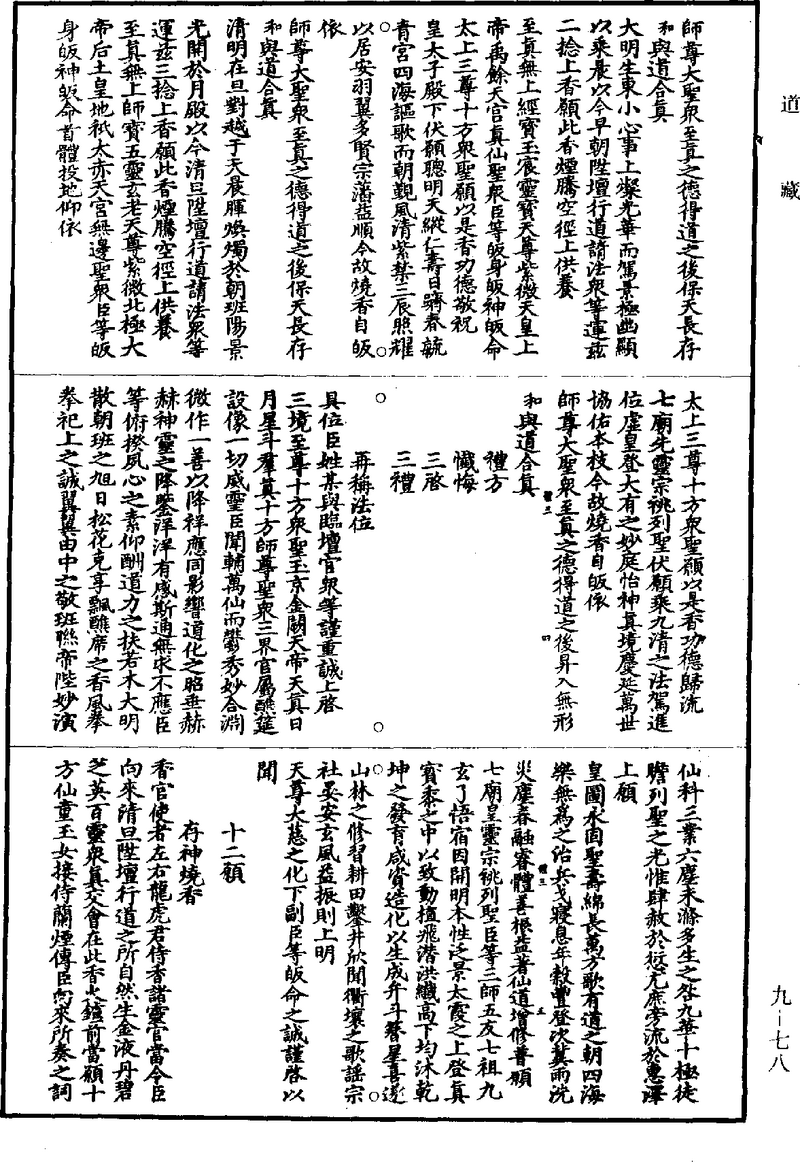 道藏
師尊大聖衆至真之德得道之後保天長存
和與道合真
大明生東小心事上燦光華而駕景極幽顯
以乘晨以今早朝陞壇行道請法衆等運茲
二捻上香願此香煙騰空徑上供養
至真無上經寶玉宸靈寶天尊紫微天皇上
帝禹餘天官真仙聖衆臣等皈身皈神皈命
太上三尊十方衆聖願以是香功德敬祝
皇太子殿下伏願聰明天縱仁壽日躋春毓
青宮四海謳歌而朝覲風清紫禁三辰照耀
以居安羽翼多賢宗藩益順今故燒香自皈
依
師尊大聖衆至真之德得道之後保天長存
和與道合真
清明在旦對越于天晨暉煥燭於朝班陽景
光開於月殿以今清旦陞壇行道請法衆等
運茲三捻上香願此香煙騰空徑上供養
至真無上師寶五靈玄老天尊紫微北極大
帝后土皇地祇太赤天宮無邊聖衆臣等皈
身皈神皈命首體投地仰依
太上三尊十方衆聖願以是香功德歸流
七廟先靈宗祧列聖伏願乘九清之法駕進
位虛皇登大有之妙庭怡神真境慶延萬世
協佑本枝今故燒香自皈依
師尊大聖衆至真之德得道之後昇入無形
和與道合真
禮方
懺悔
三啓
三禮
再稱法位
具位臣姓某與臨壇官衆等謹重誠上啓
三境至尊十方衆聖玉京金闕天帝天真日
月星斗羣真十方師尊聖衆三界官屬醮筵
設像一切威靈臣聞輔萬仙而鬱秀妙合淵
微作一善以降祥應同影響道化之昭垂赫
赫神靈之降鑒洋洋有感斯通無求不應臣
等俯撩夙心之素仰酬道力之扶若木大明
散朝班之旭日松花克享飄醮席之香風拳
拳祀上之誠翼翼由中之敬班聯帝陛妙演
仙科三業六塵未滌多生之咎九華十極徒
瞻列聖之光惟肆赦於愆尤庶旁流於惠澤
上願
皇圖永固聖壽綿長萬方歌有道之朝四海
樂無為之治兵戈寢息年穀豐登沴冀雨沈
災塵春融睿體善根益著仙道增修普願
七廟皇靈宗祧列聖臣等三師五友七祖九
玄了悟宿因開明本性泛景太霞之上登真
寶黍之中以致動植飛潛洪纖高下均沐乾
坤之發育咸資造化以生成升斗聱星喜邃
山林之修習耕田鑿井欣聞衢壤之歌謠宗
社奠安玄風益振則上明
天尊大慈之化下副臣等皈命之誠謹啓以
聞
十二願
存神燒香
香官使者左右龍虎君侍香諸靈官當令臣
向來清旦陞壇行道之所自然生金液丹碧
芝英百靈衆真交會在此香火鑪前當願十
方仙童玉女接侍蘭煙傳臣向來所奏之詞
九—七八